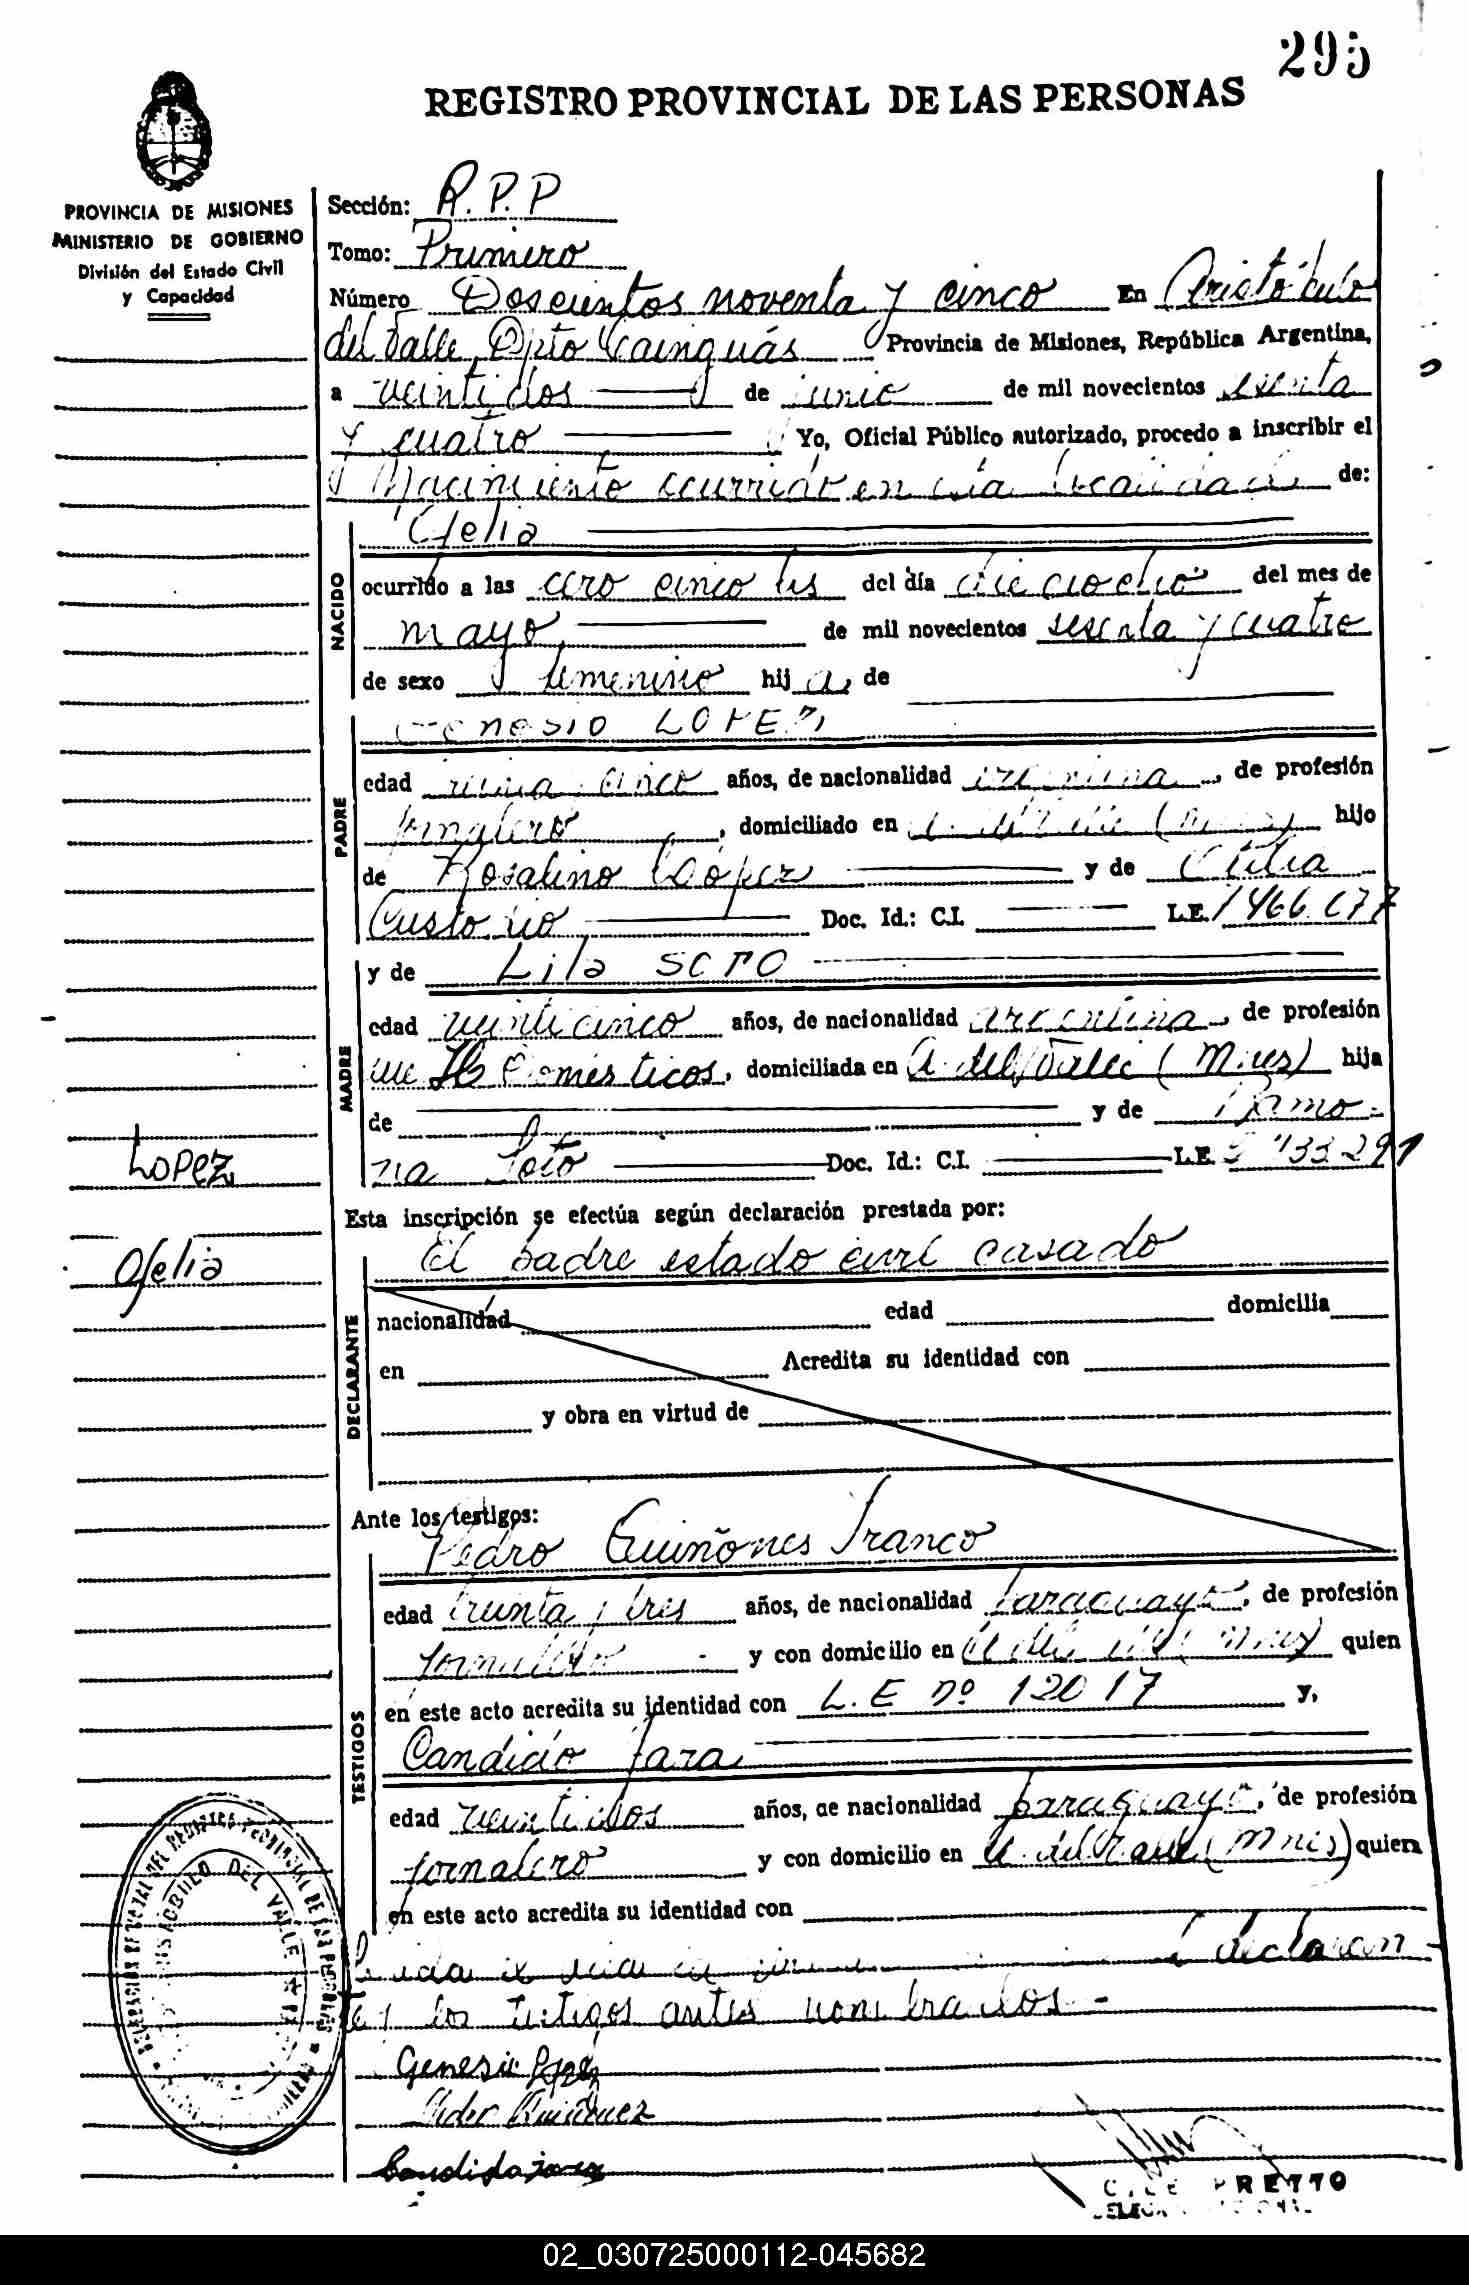 295
REGISTRO PROVINCIAL DE LAS PERSONAS
PROVINCIA DE MISIONES
MINISTERIO DE GOBIERNO
División del Estado Civil
y Capacidad
Sección: R.P.P
Tomo: Primero
Número Doscientos noventa y cinco En Aristóbulo
del Valle, Dpto Cainguás Provincia de Misiones, República Argentina,
a veintidos de junio de mil novecientos sesenta
y cuatro Yo, Oficial Público autorizado, procedo a inscribir el
Nacimiento ocurrido en esta localidad de:
NACIDO
Ofelia
ocurrido a las cero cinco hs del día dieciocho del mes de
mayo de mil novecientos sesenta y cuatro
de sexo femenino hij a, de
PADRE
Genesio LOPEZ
edad cinco años, de nacionalidad argentina, de profesión
jornalero, domiciliado en A. del Valle (Mnes) hijo
de Rosalino López y de
Custodio Doc. Id.: C.I. L.E. 1466.677
MADRE
y de Lila SOTO
edad veinticinco años, de nacionalidad argentina, de profesión
que Hs Domésticos, domiciliada en A. del Valle (Mnes) hija
de y de Ramo-
na Soto Doc. Id.: C.I. L.E. 133.291
Lopez
Ofelia
Esta inscripción se efectúa según declaración prestada por:
DECLARANTE
El padre estado civil casado
nacionalidad edad domicilia
en Acredita su identidad con
y obra en virtud de
Ante los testigos:
TESTIGOS
Pedro Quiñones Franco
edad treinta y tres años, de nacionalidad paraguayo, de profesión
jornalero y con domicilio en A. del Valle (Mnes) quien
en este acto acredita su identidad con L.E nº 12017 y,
Candido Jara
edad veintidos años, de nacionalidad paraguayo, de profesión
jornalero y con domicilio en A. del Valle (Mnes) quien
en este acto acredita su identidad con
declaran
los testigos antes nombrados -
DELEGACION DEL REGISTRO PROVINCIAL DE LAS PERSONAS
ARISTOBULO DEL VALLE
Genesio Lopez
Candido jara
PRETTO
02_030725000112-045682